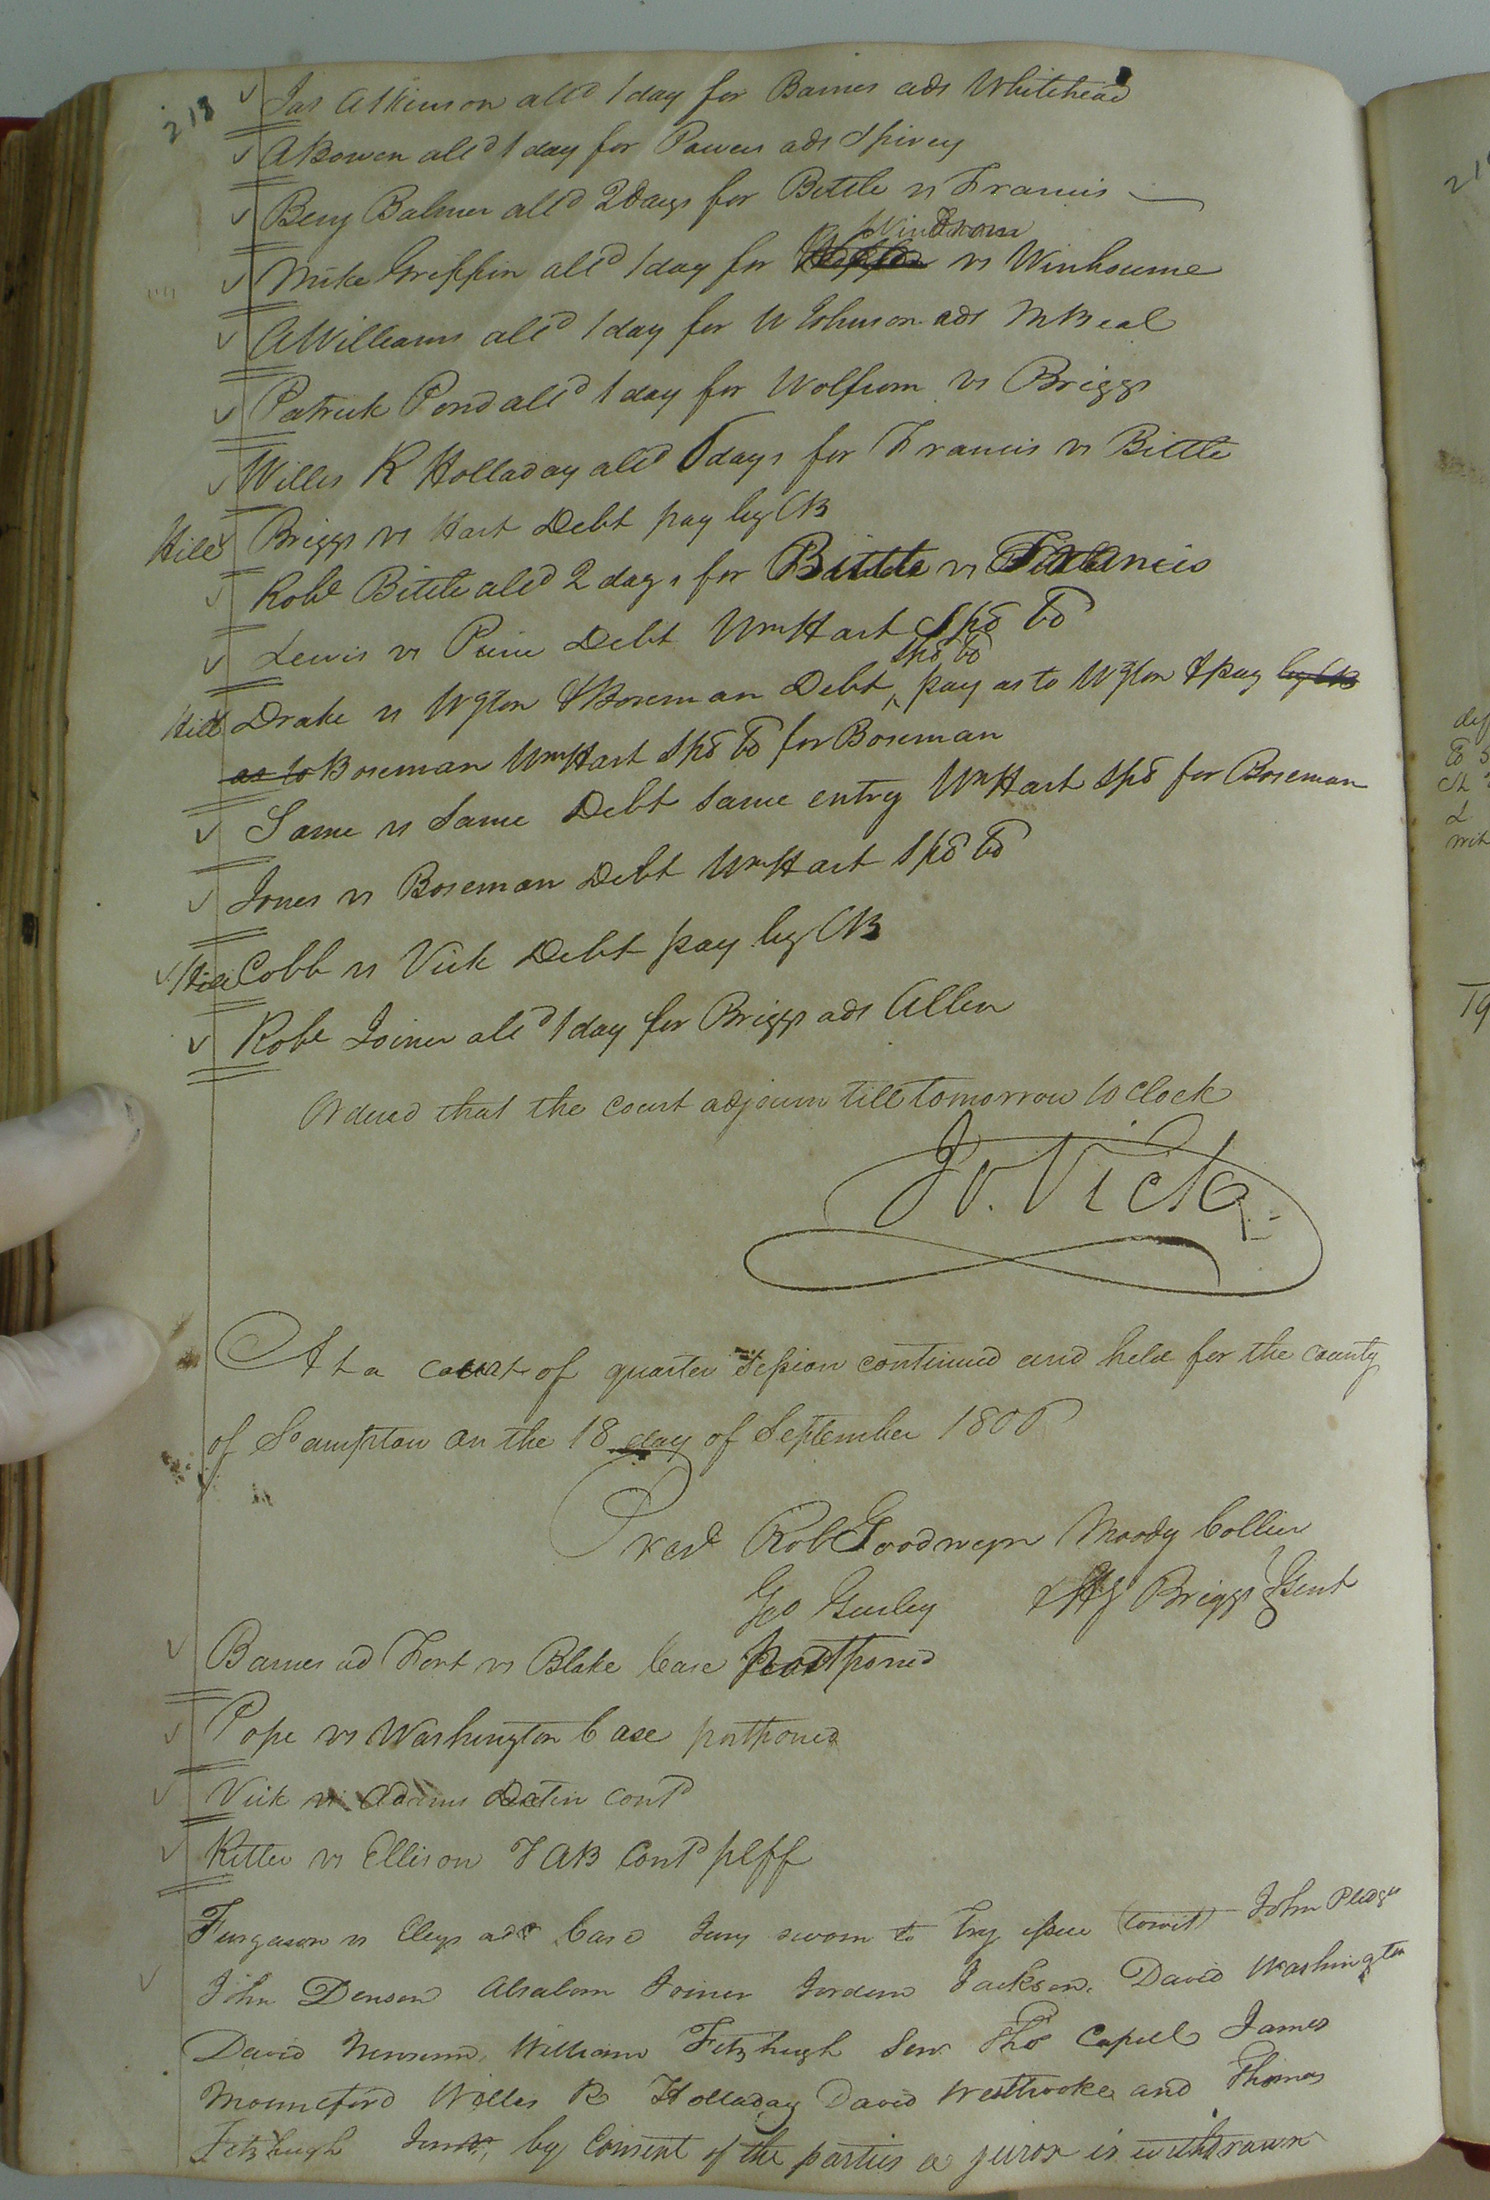 218
Jas Atkinson alld 1 day for Barnes ads Whitehead
A Bowen alld 1 day for Powers ads Spivey
Benj Balmer alld 2 days for Bittle vs Francis
Windrom
Mike Griffin alld 1 day for vs Winbourne
A Williams alld 1 day for W Johnson ads McBeal
Patrick Pond alld 1 day for Wolfrom vs Briggs
Willis R Holladay alld 6 days for Francis vs Bittle
Hill Briggs vs Hart Debt pay by CB
Robt Bittle alld 2 days for Bittle vs Francis
Lewis vs Debt Wm Hart Spd bd
spd bd
Hill Drake vs Wgton & Boseman Debt ^ pay as to Wgton & pay by CB
as to Boseman Wm Hart Spd bd for Boseman
Same vs Same Debt Same entry Wm Hart Spd for Boseman
Jones vs Boseman Debt Wm Hart Spd bd
Hill Cobb vs Vick Debt pay by CB
Robt Joiner alld 1 day for Briggs ads Allen
Ordered that the court adjourn till tomorrow 10 Clock
Jo. Vick
At a court of quarter Session continued and held for the county
of So ampton on the 18 day of September 1800
Prest Rob Goodwyn Moody Collier
Geo Gurley & HJ Briggs Gent
Barnes ad Fort vs Blake Case postponed
Pope vs Washington Case postponed
Vick vs Adams Detin contd
Kitler vs Ellison TAB Contd plff
Furgason vs Clays ads Case Jury sworn to try issue (towit) John Pledger
John Denson Absalom Joiner Jordan Jackson, David Washington
David Newsum, William Fitzhugh Senr Tho Capell James
Mounctford Willis R Holladay David Westbrooke and Thomas
Fitzhugh Junr, by Consent of the parties a juror is withdrawn